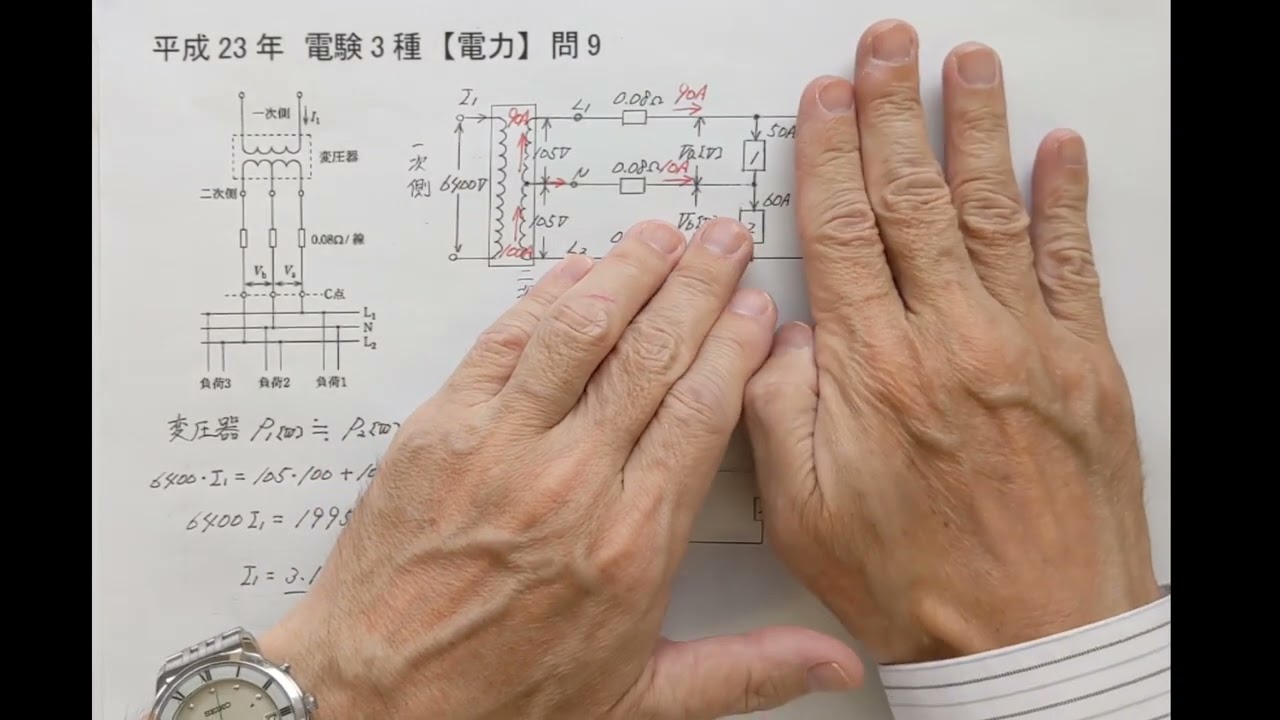 平成23年 電験3種【電力】問9
一次側
I₁
変圧器
二次側
0.08Ω/線
V_b
V_a
C点
L₁
N
L₂
負荷3
負荷2
負荷1
I₁
一次側
6400V
90A
100A
105V
105V
L₁
N
L₂
0.08Ω
90A
0.08Ω
10A
Va[V]
50A
1
60A
2
変圧器 P₁[W]≒P₂[W]
6400・I₁=105・100+10
6400I₁=1995
I₁=3.1
SEIKO